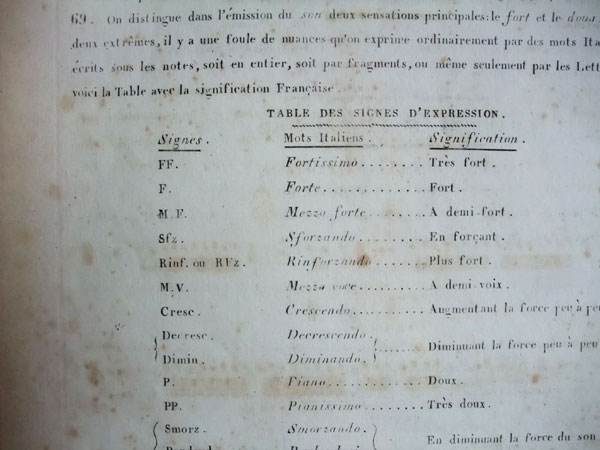 69. On distingue dans l'émission du son deux sensations principales: le fort et le doux
deux extrêmes, il y a une foule de nuances qu'on exprime ordinairement par des mots Ita
écrits sous les notes, soit en entier, soit par fragments, ou même seulement par les Lett
voici la Table avec la signification Française.
TABLE DES SIGNES D'EXPRESSION.
Signes. Mots Italiens. Signification.
FF. Fortissimo........ Très fort.
F. Forte............ Fort.
M.F. Mezzo forte....... A demi-fort.
Sfz. Sforzando........ En forçant.
Rinf. ou RFz. Rinforzando...... Plus fort.
M.V. Mezzo voce....... A demi-voix.
Cresc. Crescendo........ Augmentant la force peu à peu
Decresc Decrescendo.
Dimin. Diminando. ...... Diminuant la force peu à peu
P. Piano............ Doux.
PP. Pianissimo....... Très doux.
Smorz. Smorzando.
En diminuant la force du son